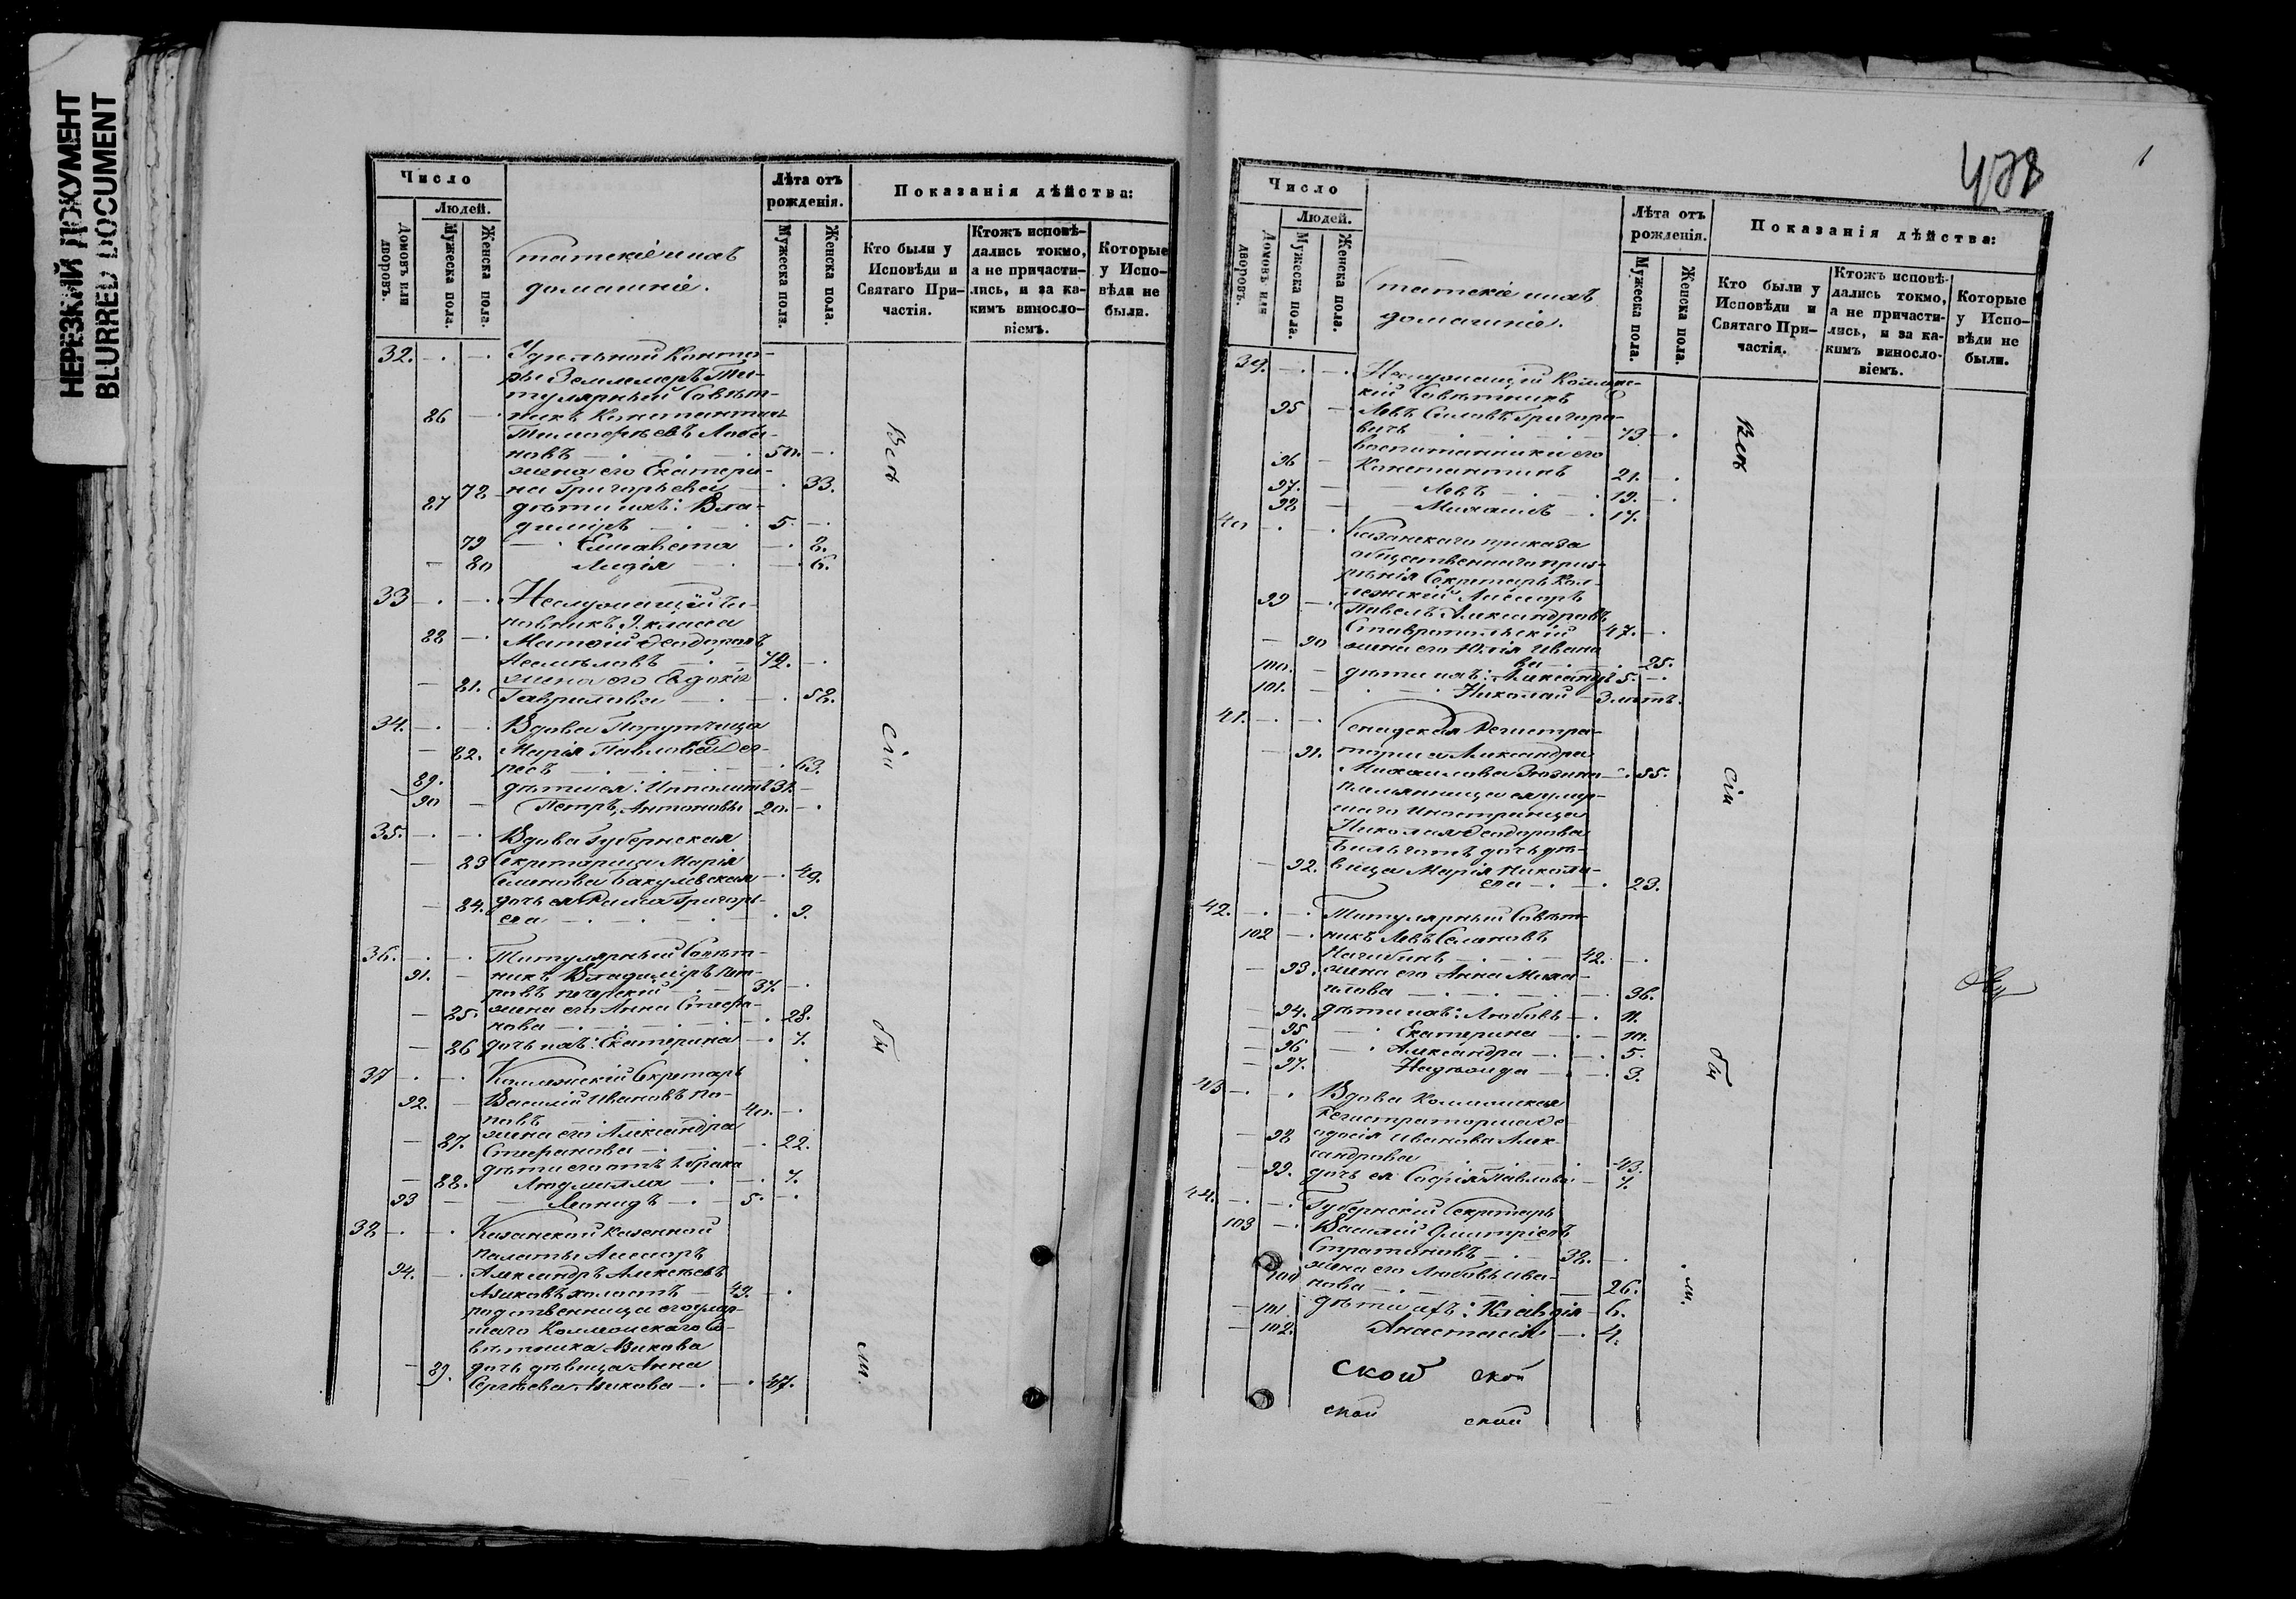 НЕРЕЗКИЙ ДОКУМЕНТ
BLURRED DOCUMENT
Число
Людей.
Домовъ или дворовъ.
Мужеска пола.
Женска пола.
Статскіе и ихъ
домашніе.
Лѣта отъ рожденія.
Мужеска пола.
Женска пола.
Показанія дѣйства:
Кто были у Исповѣди и Святаго При-частія.
Ктожъ исповѣ-дались токмо, а не причасти-лись, и за ка-кимъ винosло-віемъ.
Которые у Испо-вѣди не были.
32. Удѣльной Конто-
ры Землемеръ Ти-
тулярный Совѣт-
86 никъ Константинъ
Тимофѣевъ Лоба-
новъ 50.
жена его Екатери-
72 на Григорьева 33.
87 дѣти ихъ: Вла-
димiръ 5.
79 Елисавета 8.
80 Лидія 6.
33 Неслужащій чи-
новникъ 9. класса
88 Матвій Феодоровъ
72.
81. жена его Евдокія
Гаврилова 58.
34. Вдова Порутчица
82. Марія Павлова
63.
89. дѣти ея: Ипполитъ 31.
90 Петръ, Антоновы 20.
35. Вдова Губернская
83 Секретарша Марія
Семенова Бакулевская 49.
84. дочь ея Раиса Григорь-
ева 9.
36. Титулярный Совѣт-
91. никъ Владимiръ Пет-
ровъ Печерскій 37.
85. жена его Анна Стефа-
нова 28.
86 дочь ихъ: Екатерина 7.
37 Коллежскій Секретарь
92. Василій Ивановъ По-
повъ 40.
87. жена его Александра
Стефанова 22.
дѣти его отъ 1 брака
88. Людмилла 7.
93 Леонидъ 5.
38 Казанской казенной
палаты Ассессоръ
94. Александръ Алексѣевъ
Азиковъ холостъ 49.
родственница его умер-
шаго Коллежскаго Со-
вѣтника Азикова
89. дочь дѣвица Анна
Сергѣева Азикова 47.
Всѣ
сіи
бы
ли.
478
Число
Людей.
Домовъ или дворовъ.
Мужеска пола.
Женска пола.
Статскіе и ихъ
домашніе.
Лѣта отъ рожденія.
Мужеска пола.
Женска пола.
Показанія дѣйства:
Кто были у Исповѣди и Святаго При-частія.
Ктожъ исповѣ-дались токмо, а не причасти-лись, и за ка-кимъ винosло-віемъ.
Которые у Испо-вѣди не были.
39. Неслужащій Коллеж-
скій Совѣтникъ
95 Левъ Силовъ Григоро-
вичъ 73.
воспитанники его
96 Константинъ 21.
97. Левъ 19.
98 Михаилъ 17.
40 Казанскаго приказа
общественнаго приз-
рѣнія Секретарь Кол-
лежскій Ассесоръ
99 Павелъ Александровъ
Ставропольскій 47.
90 жена его Юлія Ивано-
ва 25.
100. дѣти ихъ: Александръ 5.
101. Николай 3 лѣтъ.
41. Сенатская Регистра-
91. торша Александра
Михаилова 55.
племянница ея умер-
шаго Иностранца
Николая Феодорова
дочь дѣ-
92. вица Марія Никола-
ева 23.
42. Титулярный Совѣт-
102 никъ Левъ Семеновъ
Нагибинъ 42.
93. жена его Анна Миха-
илова 36.
94. дѣти ихъ: Любовь 11.
95 Екатерина 10.
96 Александра 5.
97. Надежда 3.
43 Вдова Коллежская
Регистраторша Ѳе-
98 одосія Иванова Алек-
сандрова 43.
99. дочь ея Софія Павлова 7.
44. Губернскій Секретарь
103 Василій Дмитріевъ
Стратоновъ 38.
100 жена его Любовь Ива-
нова 26.
101 дѣти ихъ: Клавдія 6.
102. Анастасія 4.
ской ской
ской ской
Всѣ
сіи
бы
ли.